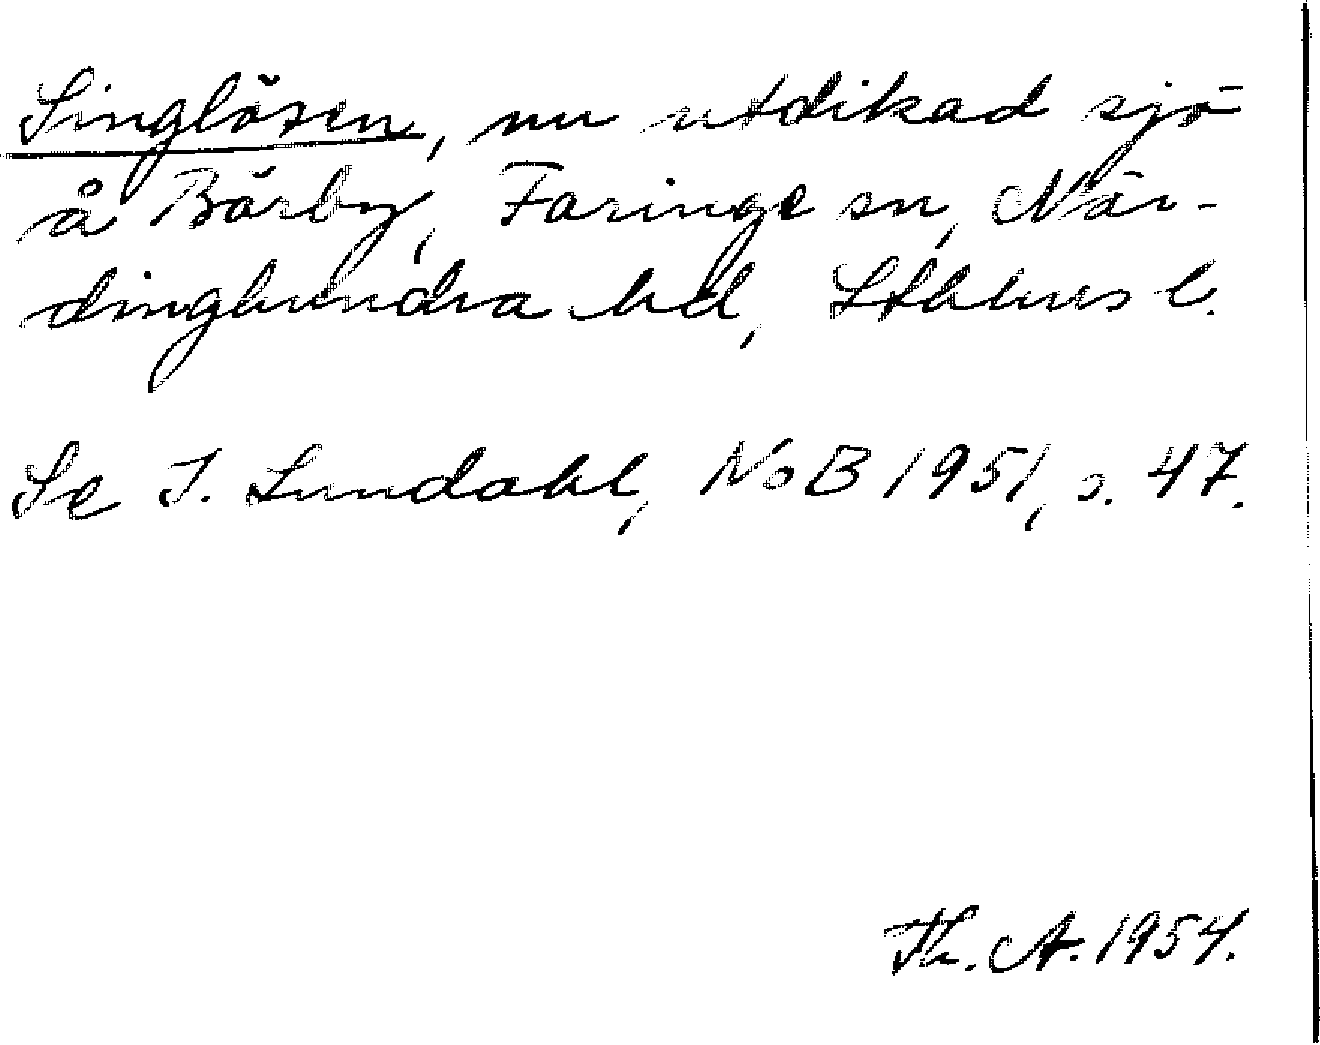 Singlösen, nu utdikad sjö
å Bärby, Faringe sn, När-
dinghundra hd, Sthlms l.
Se I. Lundahl, NoB 1951, s. 47.
Th. A. 1954.